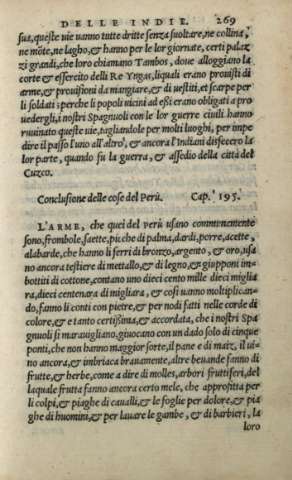 DELLE INDIE. 269
sus, queste uie uanno tutte dritte senza suoltare, ne collina,
ne mõte, ne lagho, & hanno per le lor giornate, certi palaz
zi grandi, che loro chiamano Tambos, doue alloggiano la
corte & essercito delli Re Yngas, liquali erano prouisti di
arme, & prouisioni da mangiare, & di uestiti, et scarpe per
li soldati; perche li popoli uicini ad essi erano obligati a pro
uedergli, i nostri Spagnuoli con le lor guerre ciuili hanno
rruuinato queste uie, tagliandole per molti luoghi, per impe
dire il passo l'uno all'altro, & ancora l'Indiani disfecero la
lor parte, quando fu la guerra, & assedio della città del
Cuzco.
Conclusione delle cose del Perù. Cap. 195.
L'ARME, che quei del perù usano communemente
sono, frombole, saette, picche di palma, dardi, porre, acette,
alabarde, che hanno li ferri di bronzo, argento, & oro, usa
no ancora testiere di mettallo, & di legno, et giupponi im-
bottiti di cottone, contano uno dieci cento mille dieci miglia
ra, dieci centenara di migliara, & così uanno moltiplican-
do, fanno li conti con pietre, et per nodi fatti nelle corde di
colore, & e tanto certissima, & accordata, che i nostri Spa
gnuoli si marauigliano, giuocano con un dado solo di cinque
ponti, che non hanno maggior sorte, il pane e di maiz, il ui-
no ancora, & imbriaca brauamente, altre beuande fanno di
frutte, & herbe, come a dire di molles, arbori fruttiferi, del
laquale frutta fanno ancora certo mele, che approfitta per
li colpi, & piaghe di caualli, & le foglie per dolore, & pia
ghe di huomini, & per lauare le gambe, & di barbieri, la
loro